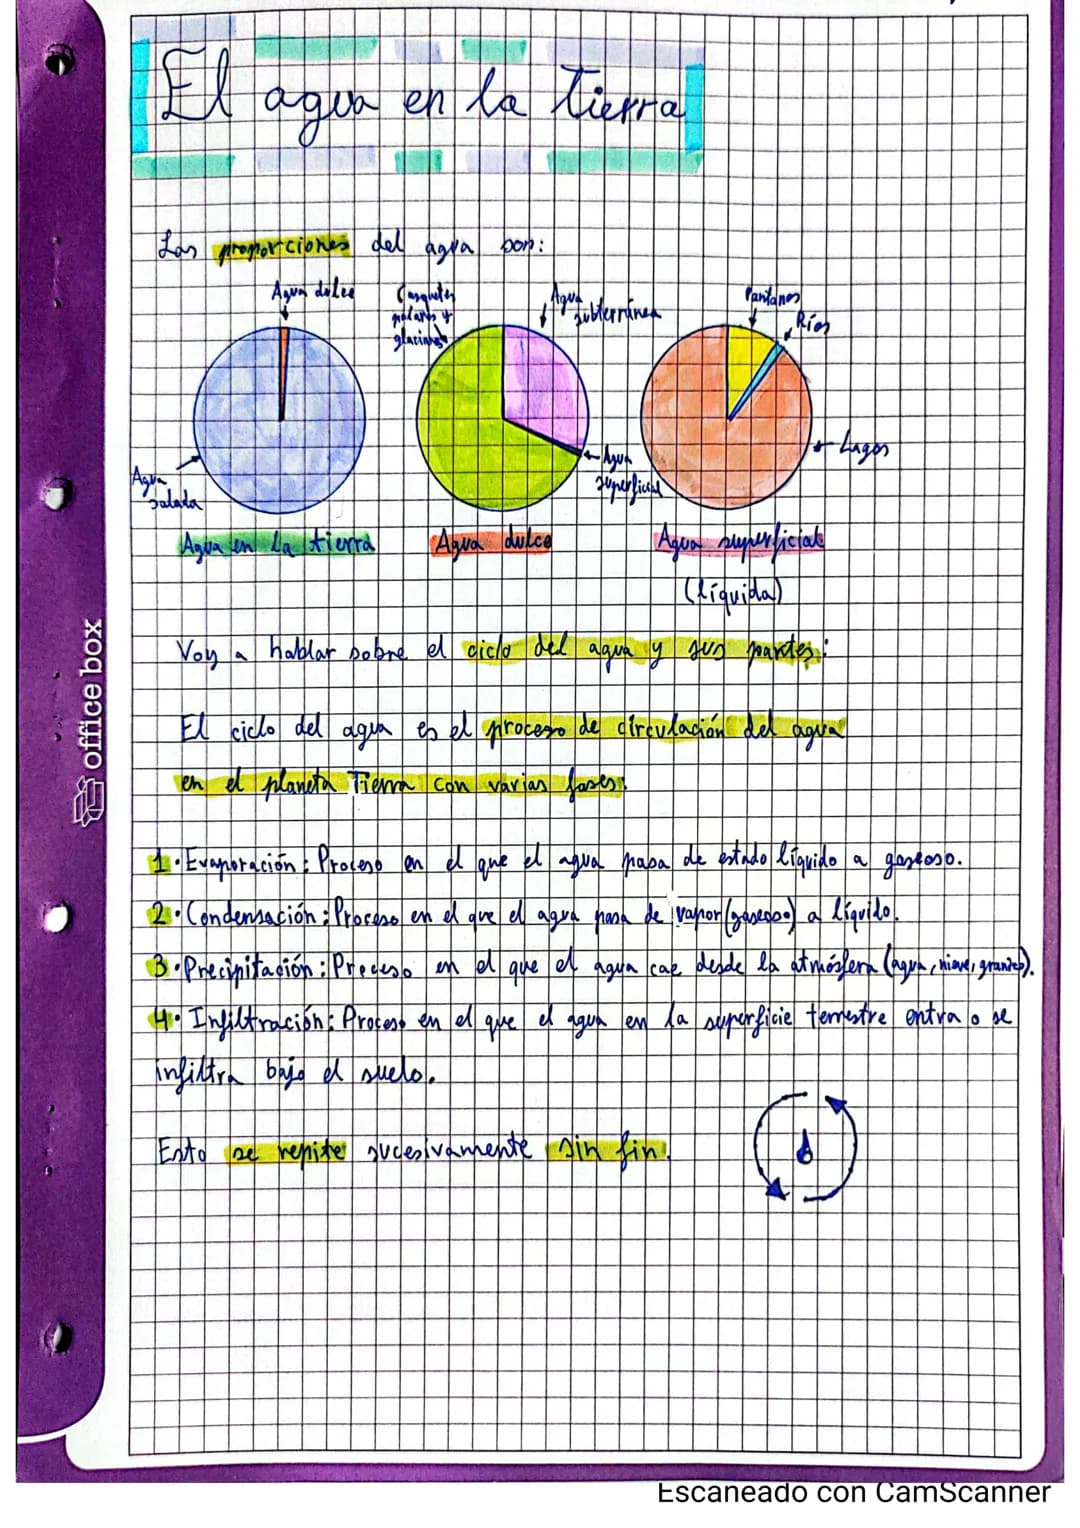 El agua en la Tierra
Las proporciones del agua son:
Agua dulce
Agua
salada
Agua en la tierra
Casquetes
polares y
glaciares
Agua
subterránea
Agua
superficial
Agua dulce
Pantanos
Ríos
Lagos
Agua superficial
(líquida)
Voy a hablar sobre el ciclo del agua y sus partes:
El ciclo del agua es el proceso de circulación del agua
en el planeta Tierra con varias fases:
1. Evaporación: Proceso en el que el agua pasa de estado líquido a gaseoso.
2. Condensación: Proceso en el que el agua pasa de vapor (gaseoso) a líquido.
3. Precipitación: Proceso en el que el agua cae desde la atmósfera (agua, nieve, granizo).
4. Infiltración: Proceso en el que el agua en la superficie terrestre entra o se
infiltra bajo el suelo.
Esto se repite sucesivamente sin fin.
office box
Escaneado con CamScanner